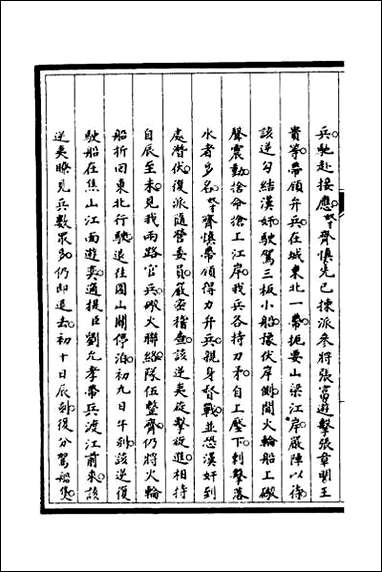 兵馳赴接應。奴才齊慎先已揀派叅將張富遊擊張章劉王
貴等帶領弁兵在城東北一帶扼要山梁江岸嚴陣以待。
該逆勾結漢奸駛駕三板小船豫伏岸側開火輪船上礮
聲震動捨命搶上江岸。我兵各持刀矛自上壓下刺擊落
水者多名。奴才齊慎帶領得力弁兵親身督戰並恐漢奸到
處潛伏。復派隨營委員嚴密稽查。該逆夷旋擊旋進相持
自辰至未。見我兩路官兵礮火聯絡隊伍整齊。仍將火輪
船折回東北行駛退往圌山關停泊。初九日午刻。該逆復
駛船在焦山江面遊奕。適提臣劉允孝帶兵渡江前來。該
逆夷瞭見兵數眾多。仍即退去。初十日辰刻。復分駕船隻。